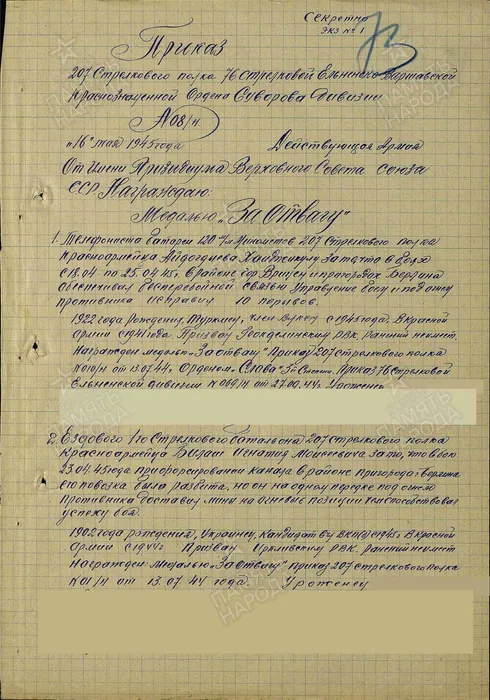 Секретно
экз № 1
Приказ
207 Стрелкового полка 76 Стрелковой Ельненско-Варшавской
Краснознаменной Ордена Суворова дивизии
№08/н
"16" мая 1945 года Действующая Армия
От имени Президиума Верховного Совета Союза
ССР Награждаю:
Медалью "За Отвагу"
1. Телефониста батареи 120 м/м минометов 207 Стрелкового полка
Красноармейца Айдогдиева за то, что в боях
с 18.04 по 25.04.45г в районе гор Врицен и пригородах Берлина
обеспечивал бесперебойной связью управление боем и под огнем
противника исправил 10 порывов.
1922 года рождения, Туркмен, член ВЛКСМ с 1945 года. В Красной
Армии с 1941 года. Призван РВК. Ранений не имеет.
Награжден медалью "За отвагу" приказ 207 стрелкового полка
от 13.07.44, Орденом "Слава" 3й степени. Приказ 76 Стрелковой
Ельненской дивизии Уроженец
2. Ездового 1го Стрелкового батальона 207 стрелкового полка
Красноармейца Игнатия Моисеевича за то, что в бою
23.04.45 года при форсировании канала в районе пригорода Берлина
его повозка была разбита, но он на одном передке под огнем
противника доставил мины на огневые позиции чем способствовал
успеху боя.
1902 года рождения, Украинец, кандидат ВКП(б) с 1945г. В Красной
Армии с 1944г. Призван РВК. Ранений не имеет
Награжден: медалью "За отвагу" приказ 207 стрелкового полка
№01/н от 13.07.44 года. Уроженец
ПАМЯТЬ НАРОДА